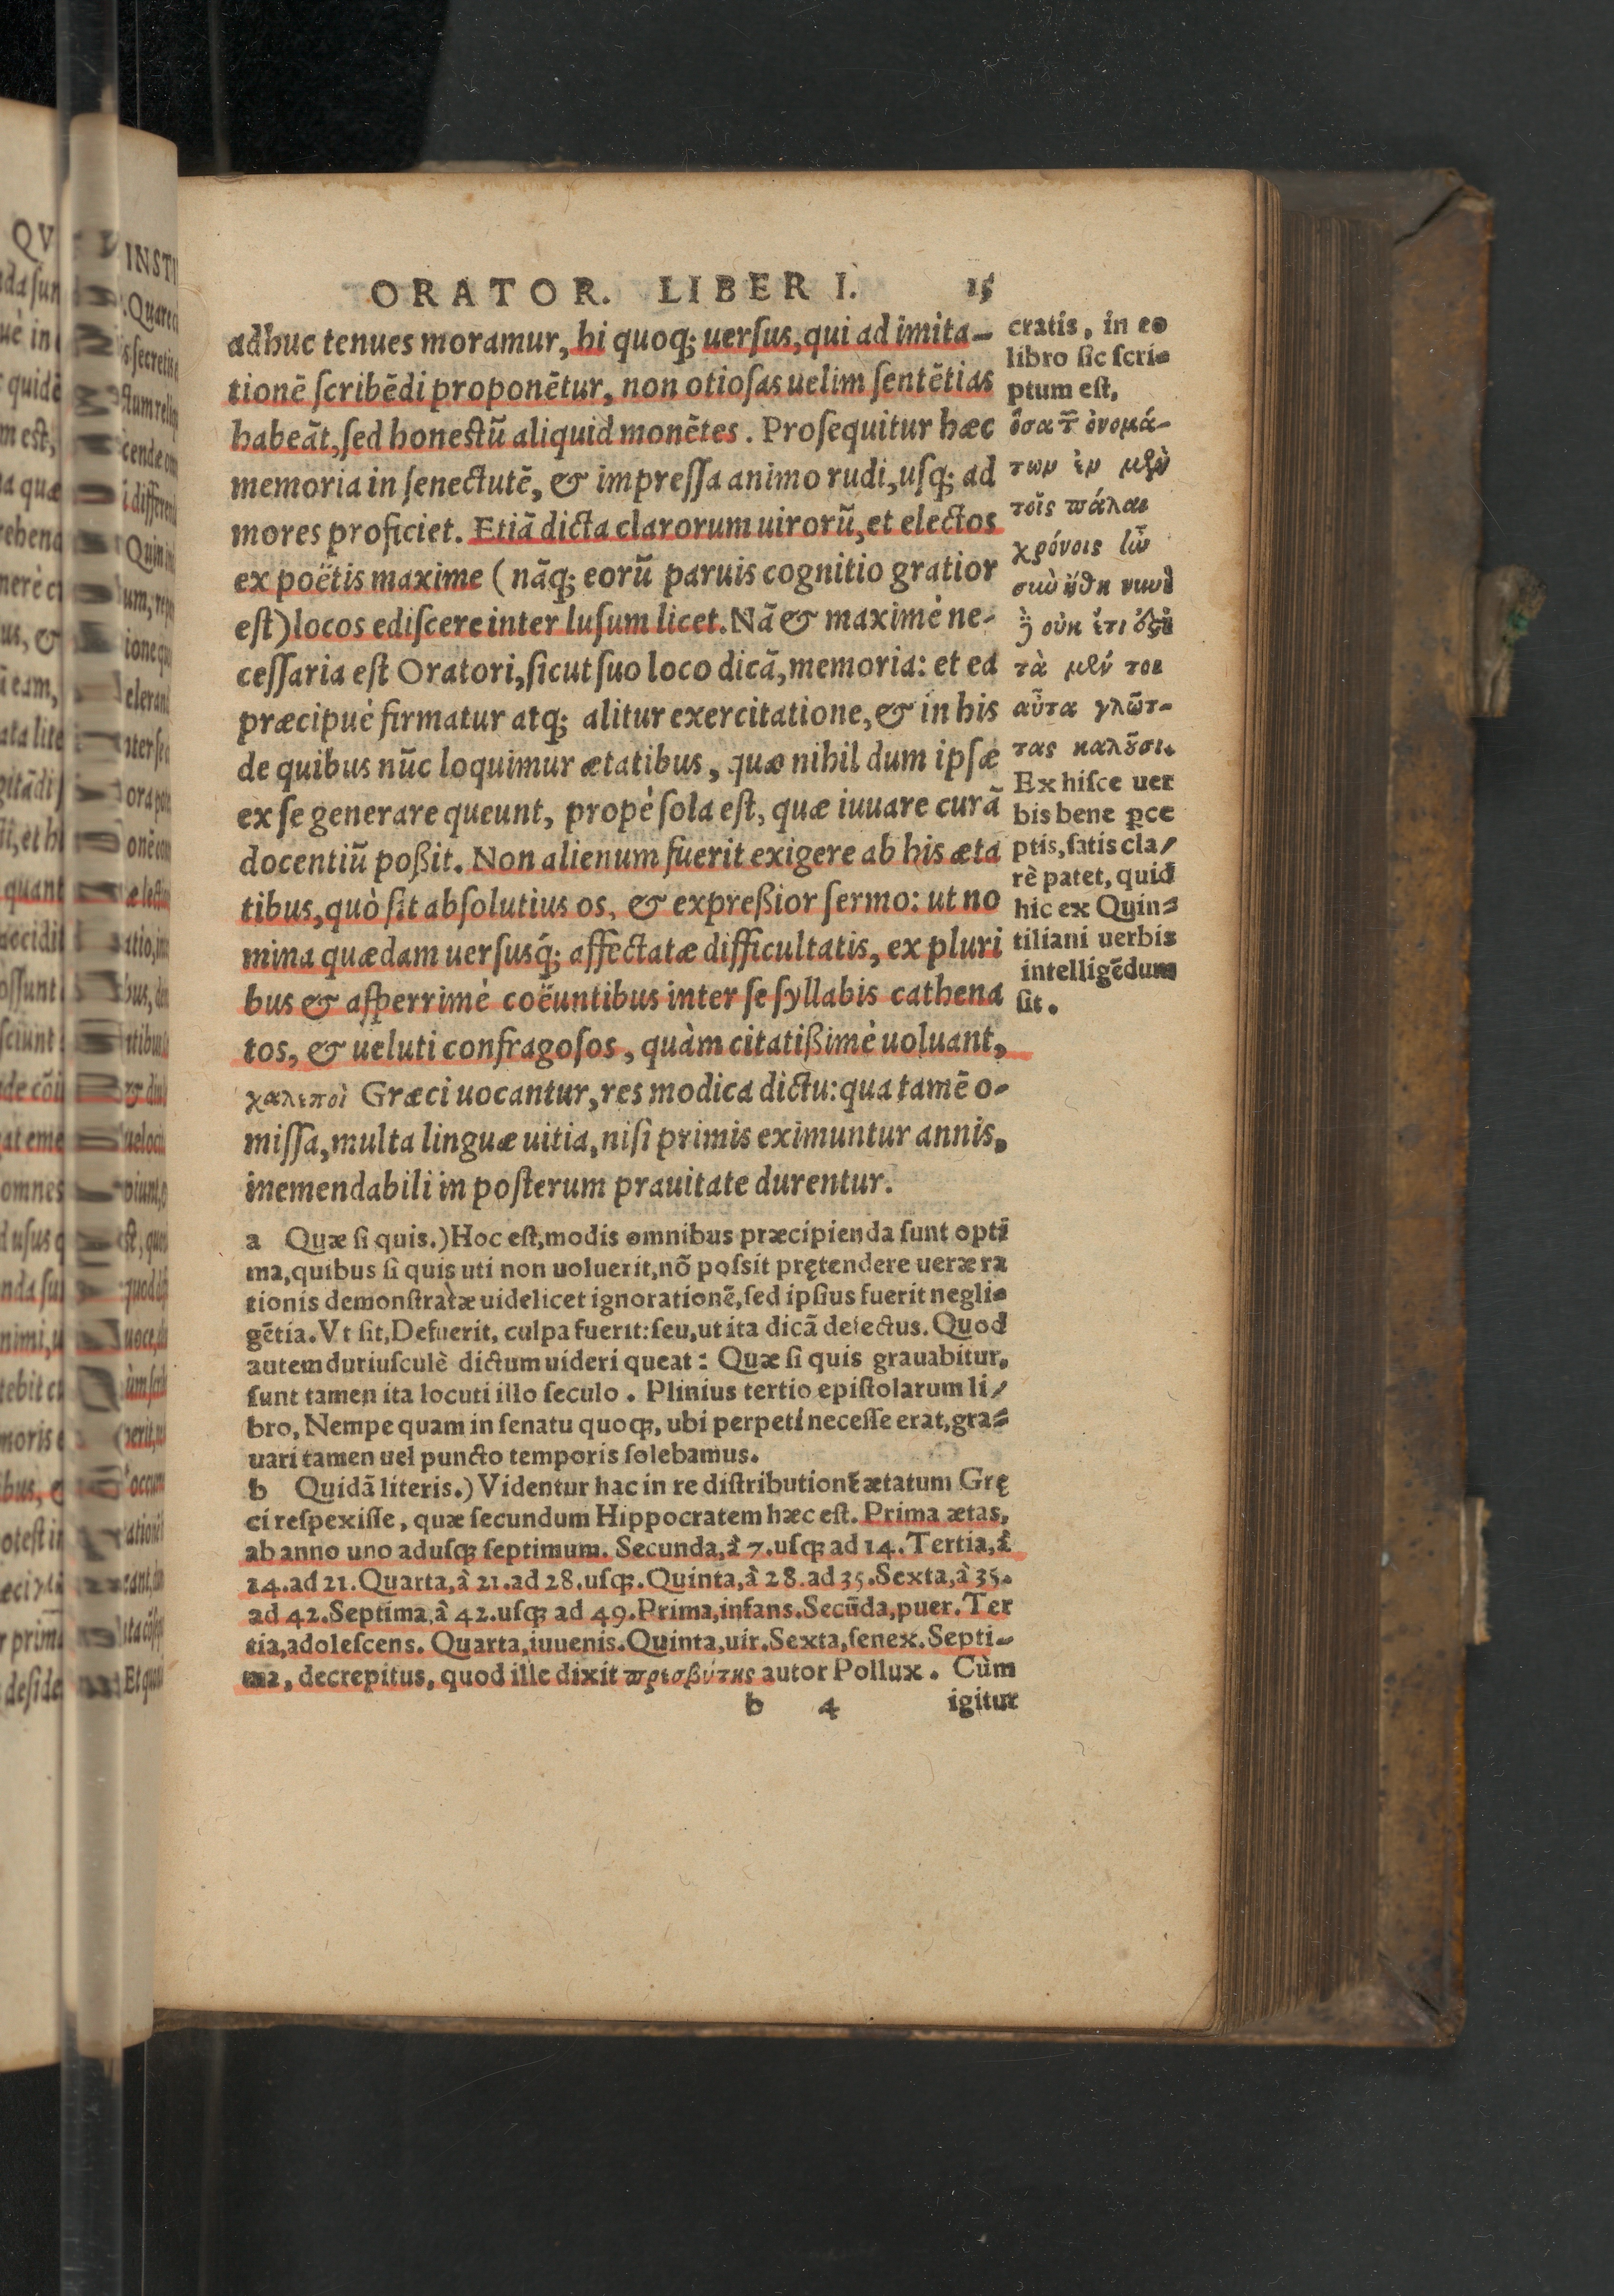 ORATOR. LIBER I. 15
adhuc tenues moramur, hi quoq; uersus, qui ad imita-
tionē scribēdi proponētur, non otiosas uelim sentētias
habeāt, sed honestū aliquid monētes. Prosequitur hæc
memoria in senectutē, & impressa animo rudi, usq; ad
mores proficiet. Etiā dicta clarorum uirorū, et electos
ex poëtis maxime (nāq; eorū paruis cognitio gratior
est) locos ediscere inter lusum licet. Nā & maximè ne-
cessaria est Oratori, sicut suo loco dicā, memoria: et ea
præcipuè firmatur atq; alitur exercitatione, & in his
de quibus nūc loquimur ætatibus, quæ nihil dum ipsæ
ex se generare queunt, propè sola est, quæ iuuare curā
docentiū poßit. Non alienum fuerit exigere ab his æta
tibus, quò sit absolutius os, & expreßior sermo: ut no
mina quædam uersusq́; affectatæ difficultatis, ex pluri
bus & asperrimè coëuntibus inter se syllabis cathena
tos, & ueluti confragosos, quàm citatißimè uoluant,
χαλεποὶ Græci uocantur, res modica dictu: qua tamē o-
missa, multa linguæ uitia, nisi primis eximuntur annis,
inemendabili in posterum prauitate durentur.
cratis, in eo
libro sic scri-
ptum est,
ὅσα τ͂ ὀνομά-
των ἐν μὲν
τοῖς πάλαι
χρόνοις
τὰ μὲν τοι
αῦτα γλῶτ-
τας καλοῦσι.
Ex hisce uer
bis bene ꝑce
ptis, satis cla/
rè patet, quid
hic ex Quin-
tiliani uerbis
intelligēdum
sit.
a Quæ si quis.) Hoc est, modis omnibus præcipienda sunt opti
ma, quibus si quis uti non uoluerit, nō possit prętendere ueræ ra
tionis demonstratæ uidelicet ignorationē, sed ipsius fuerit negli-
gētia. Vt sit, Defuerit, culpa fuerit: seu, ut ita dicā defectus. Quod
autem duriusculè dictum uideri queat: Quæ si quis grauabitur,
sunt tamen ita locuti illo seculo. Plinius tertio epistolarum li/
bro, Nempe quam in senatu quoq;, ubi perpeti necesse erat, gra-
uari tamen uel puncto temporis solebamus.
b Quidā literis.) Videntur hac in re distributionē ætatum Grę
ci respexisse, quæ secundum Hippocratem hæc est. Prima ætas,
ab anno uno adusq; septimum. Secunda, à 7. usq; ad 14. Tertia, à
14. ad 21. Quarta, à 21. ad 28. usq;. Quinta, à 28. ad 35. Sexta, à 35.
ad 42. Septima, à 42. usq; ad 49. Prima, infans. Secūda, puer. Ter
tia, adolescens. Quarta, iuuenis. Quinta, uir. Sexta, senex. Septi-
ma, decrepitus, quod ille dixit πρεσβύτης autor Pollux. Cùm
b 4 igitur